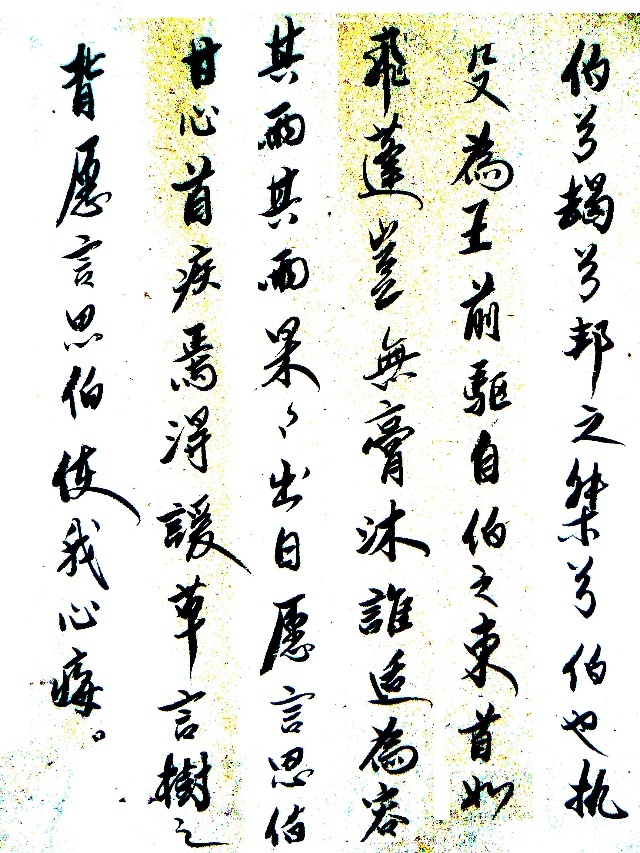 伯兮朅兮邦之桀兮伯也执
殳為王前驅自伯之東首如
飛蓬豈無膏沐誰适為容
其雨其雨杲々出日愿言思伯
甘心首疾焉得諼草言樹之
背愿言思伯使我心痗。